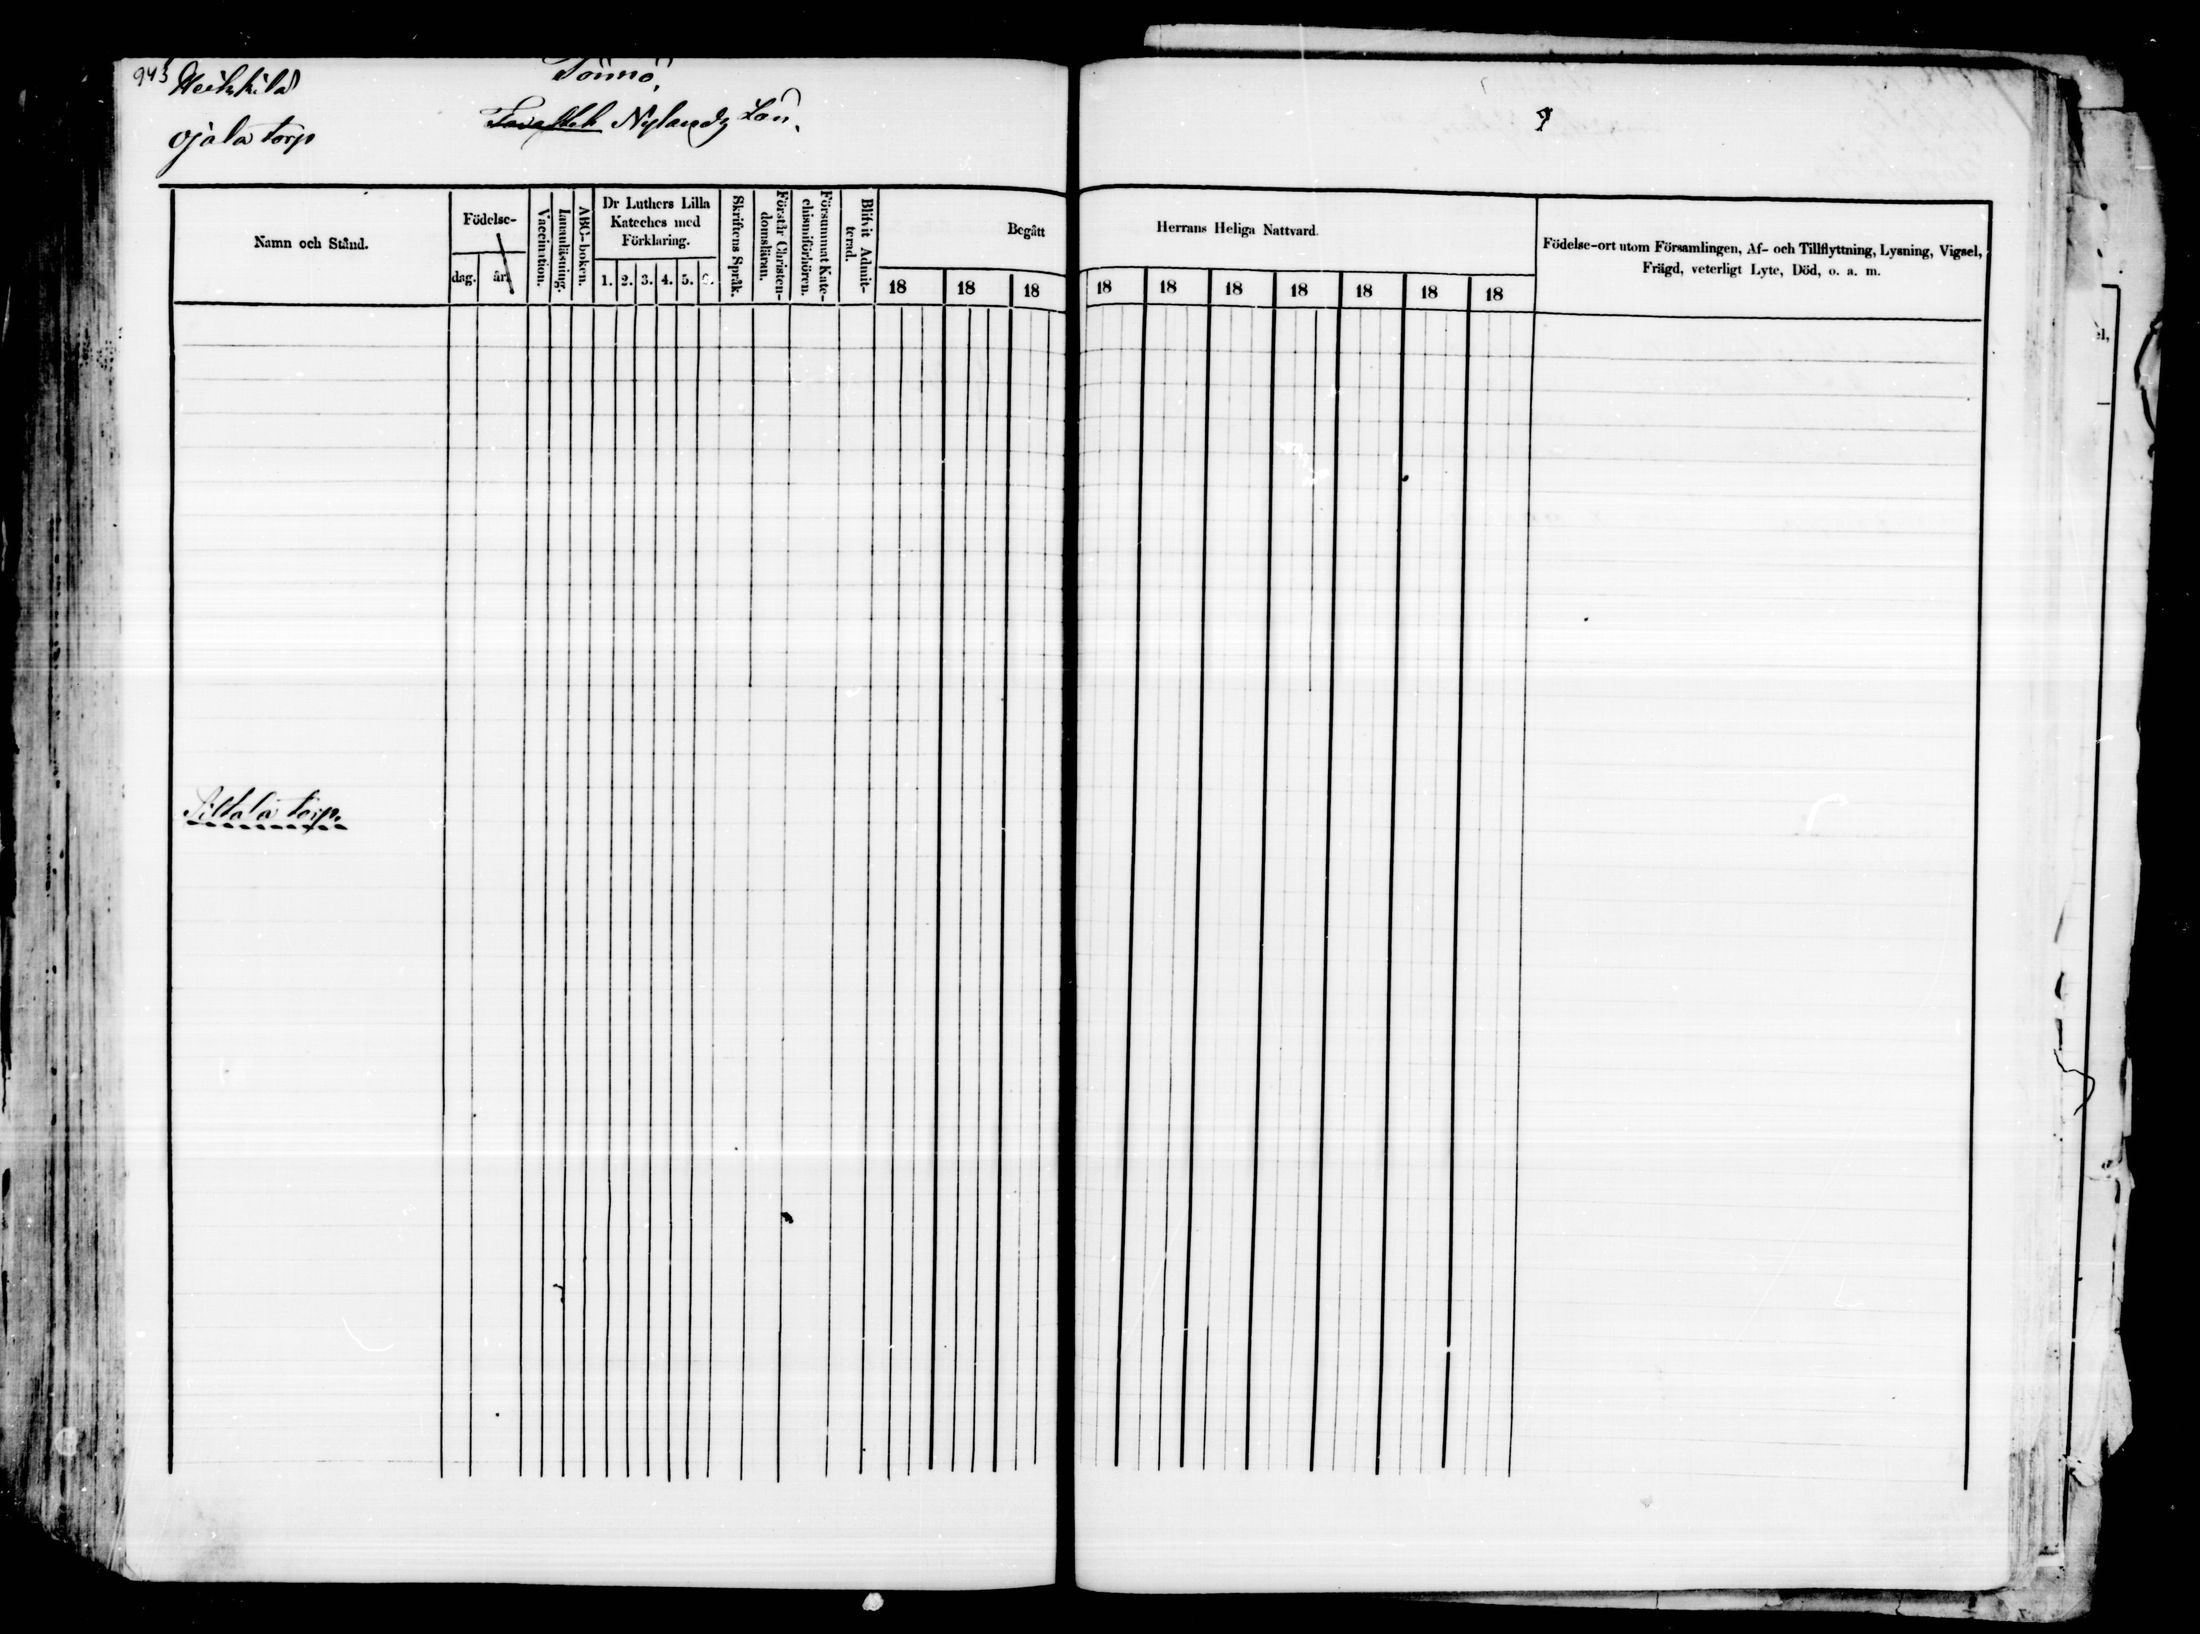 943 Heikkilä
Tönnö,
Tavasteh Nylands Län.
Ojala torp
Namn och Stånd.
Födelse-
dag. år.
Vaccination.
Innanläsning.
ABC-boken.
Dr Luthers Lilla
Kateches med
Förklaring.
1. 2. 3. 4. 5. 6.
Skriftens Språk.
Förstår Christen-
domsläran.
Försummat Kate-
chismiförhören.
Blifvit Admit-
terad.
Begått Herrans Heliga Nattvard.
18 18 18 18 18 18 18 18 18 18
Födelse-ort utom Församlingen, Af- och Tillflyttning, Lysning, Vigsel,
Frägd, veterligt Lyte, Död, o. a. m.
Siltala torp.